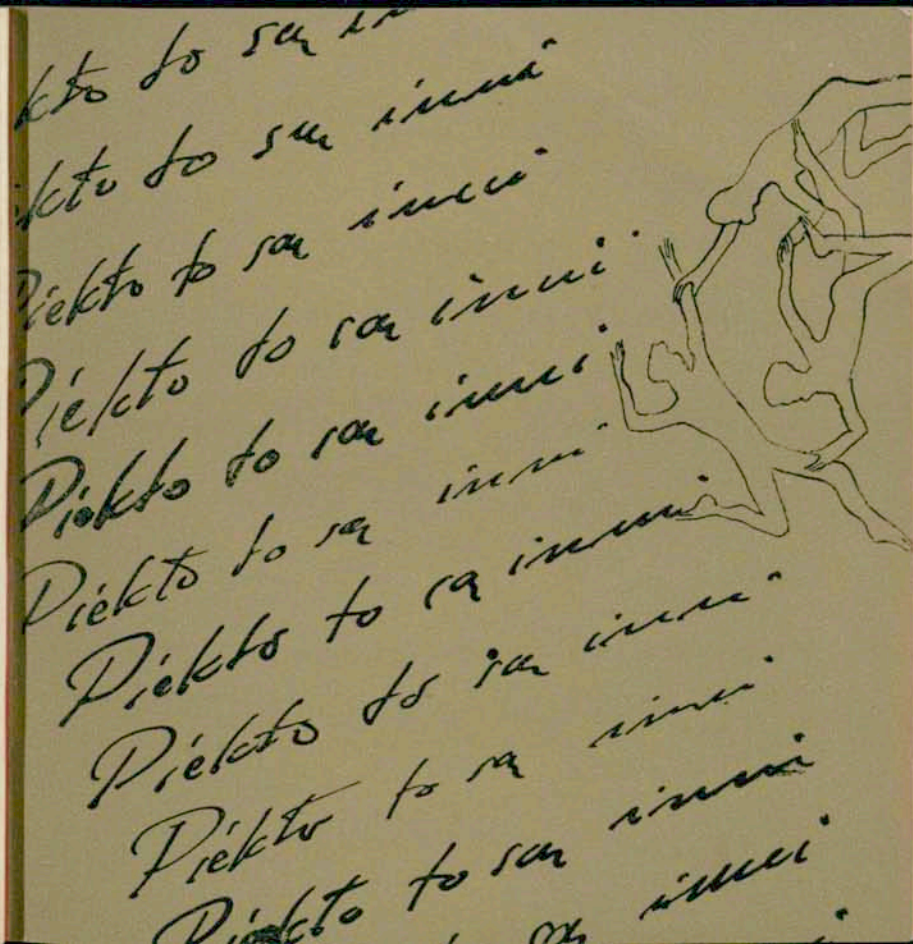 kło to są in
kło to są inni
Piekło to są inni
Piekło to są inni
Piekło to są inni
Piekło to są inni
Piekło to są inni
Piekło to są inni
Piekło to są inni
Piekło to są inni
są inni